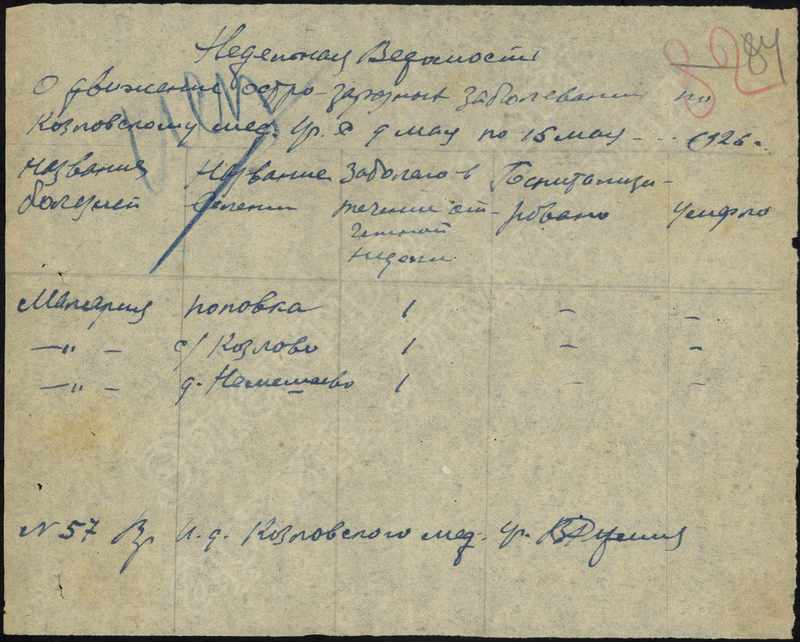 82 84
Недельная Ведомость
О движении остро-заразных заболеваний по
Козловскому мед. Ур. с 9 мая по 15 мая - .. 1926 г.
Название болезней | Название селении | Заболело в течении отчетной недели | Госпитализировано | Умерло
Малярия | Поповка | 1 | - | -
—"— | с/ Козлово | 1 | - | -
—"— | д. Немешаево | 1 | - | -
N 57 Вр. и.д. Козловского мед. Ур.